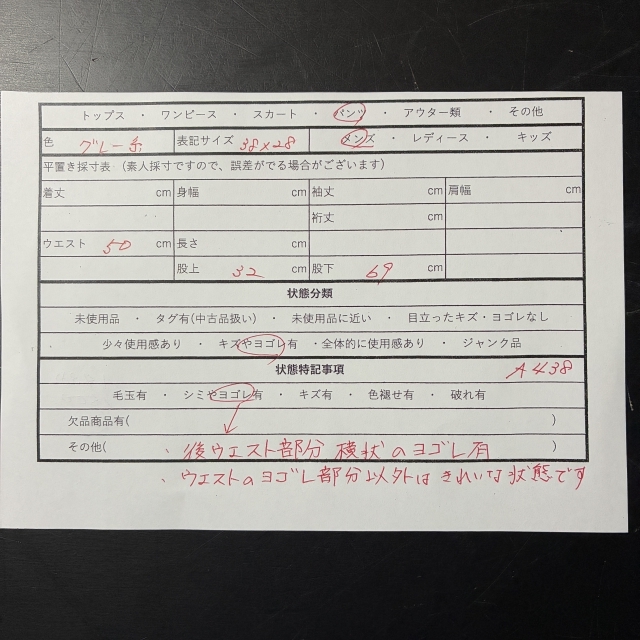 トップス ・ ワンピース ・ スカート ・ パンツ ・ アウター類 ・ その他
色 グレー系 表記サイズ 38×28 メンズ ・ レディース ・ キッズ
平置き採寸表 （素人採寸ですので、誤差がでる場合がございます）
着丈 cm 身幅 cm 袖丈 cm 肩幅 cm
裄丈 cm
ウエスト 50 cm 長さ cm
股上 32 cm 股下 69 cm
状態分類
未使用品 ・ タグ有(中古品扱い) ・ 未使用品に近い ・ 目立ったキズ・ヨゴレなし
少々使用感あり ・ キズやヨゴレ有 ・全体的に使用感あり ・ ジャンク品
状態特記事項 A438
毛玉有 ・ シミやヨゴレ有 ・ キズ有 ・ 色褪せ有 ・ 破れ有
欠品商品有( )
その他( ・後ウエスト部分 横状のヨゴレ有 )
・ウエストのヨゴレ部分以外はきれいな状態です